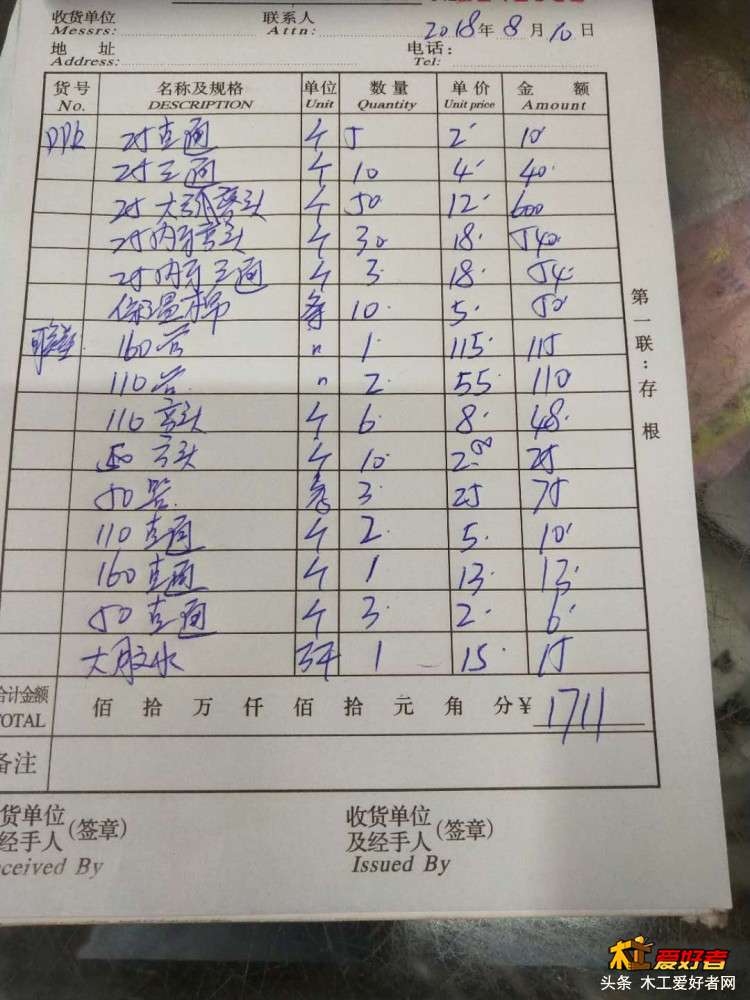 收货单位 联系人 2018年8月10日
Messrs: Attn:
地 址 电话:
Address: Tel:
货号 名称及规格 单位 数量 单价 金 额
No. DESCRIPTION Unit Quantity Unit price Amount
PPR 25直通 个 5 2 10
25三通 个 10 4 40
25大弯头 个 50 12 600
25内牙弯头 个 30 18 540
25内牙三通 个 3 18 54
保温棉 条 10 5 50
160管 〃 1 115 115
110管 〃 2 55 110
110弯头 个 6 8 48
50弯头 个 10 2.50 25
50管 条 3 25 75
110直通 个 2 5 10
160直通 个 1 13 13
50直通 个 3 2 6
大胶水 1 15 15
合计金额 佰 拾 万 仟 佰 拾 元 角 分¥ 1711
TOTAL
备注
货单位 (签章) 收货单位 (签章)
经手人 及经手人
ceived By Issued By
第一联:存根
木工爱好者
头条 木工爱好者网